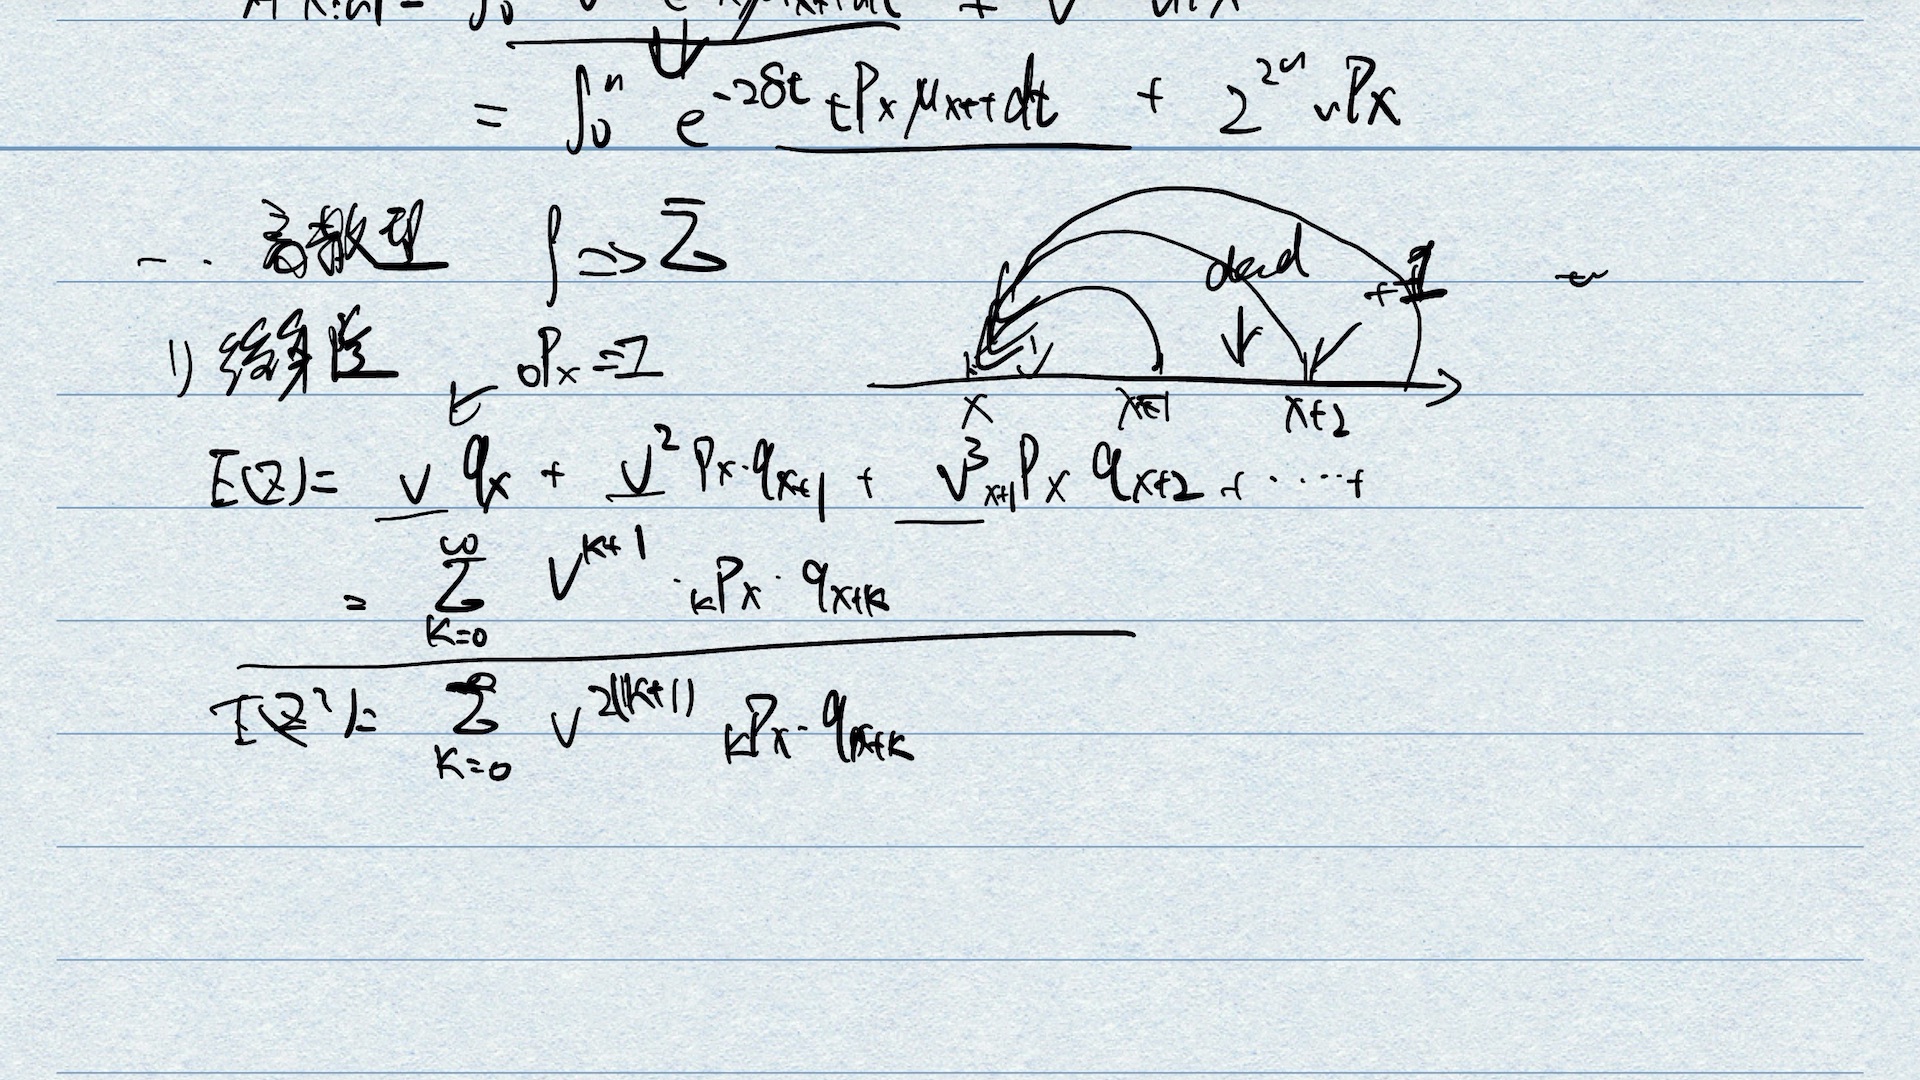 = ∫₀ⁿ e^{-2δt} tPx μx+t dt + 2^{2n} nPx
一. 离散型 ∫ => Σ
1) 终身险 0Px = 1
dead +1
x x+1 x+2
E(Z) = v qx + v² Px·qx+1 + v³ x+1Px qx+2 + ····+
= Σ_{k=0}^{∞} v^{k+1} · kPx · qx+k
E(Z²) = Σ_{k=0}^{∞} v^{2(k+1)} kPx · qx+k